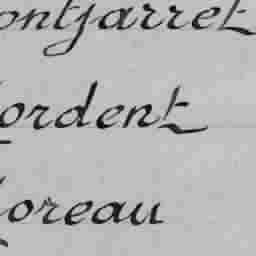 ontjarret
ordent
oreau